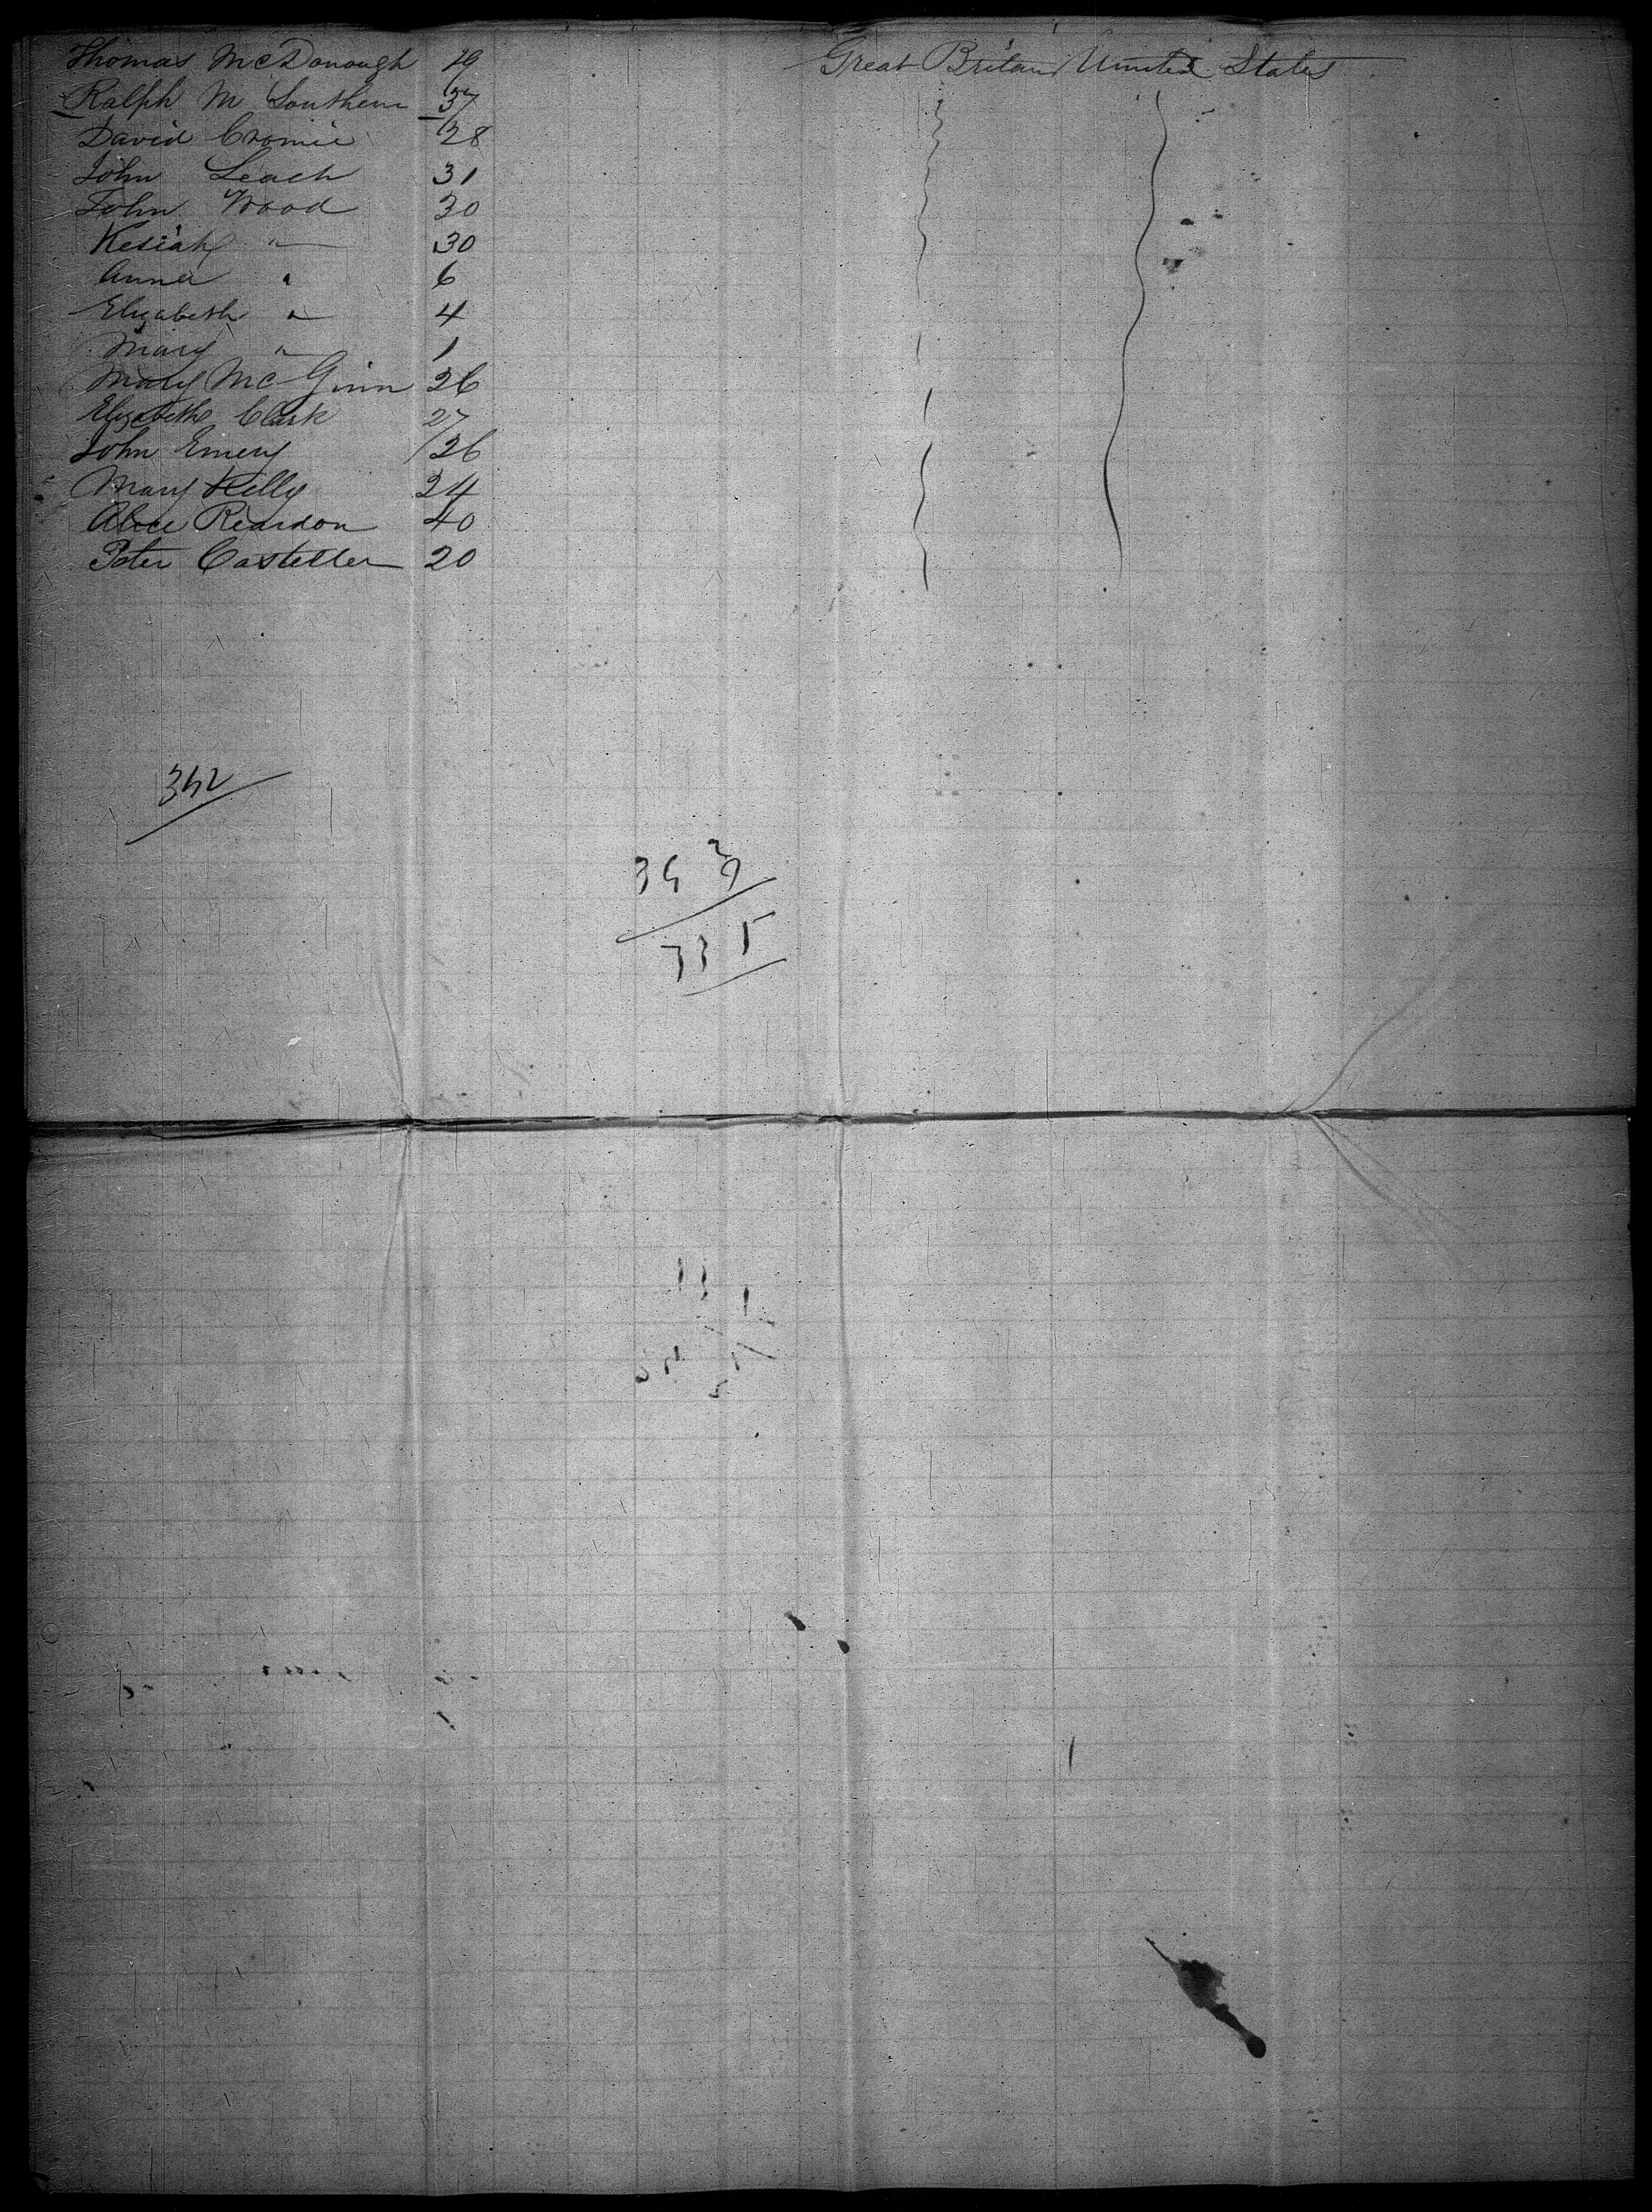 Thomas McDonough 19 Great Britain United States
Ralph M Southern 37
David Cromie 28
John Leach 31
John Wood 30
Kesiah " 30
Anna " 6
Elizabeth " 4
Mary " 1
Mary McGinn 26
Elizabeth Clark 27
John Emery 26
Mary Kelly 24
Alice Reardon 40
Peter Casteller 20
352
335